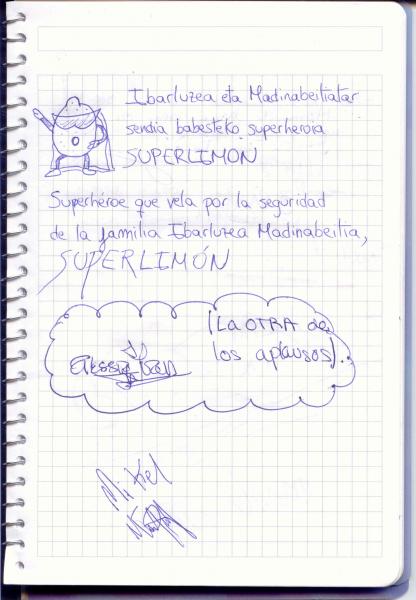 Ibarluzea eta Madinabeitiatar
sendia babesteko superheroia
SUPERLIMON
Superhéroe que vela por la seguridad
de la familia Ibarluzea Madinabeitia,
SUPERLIMÓN
(La OTRA de
los aplausos).
Mikel